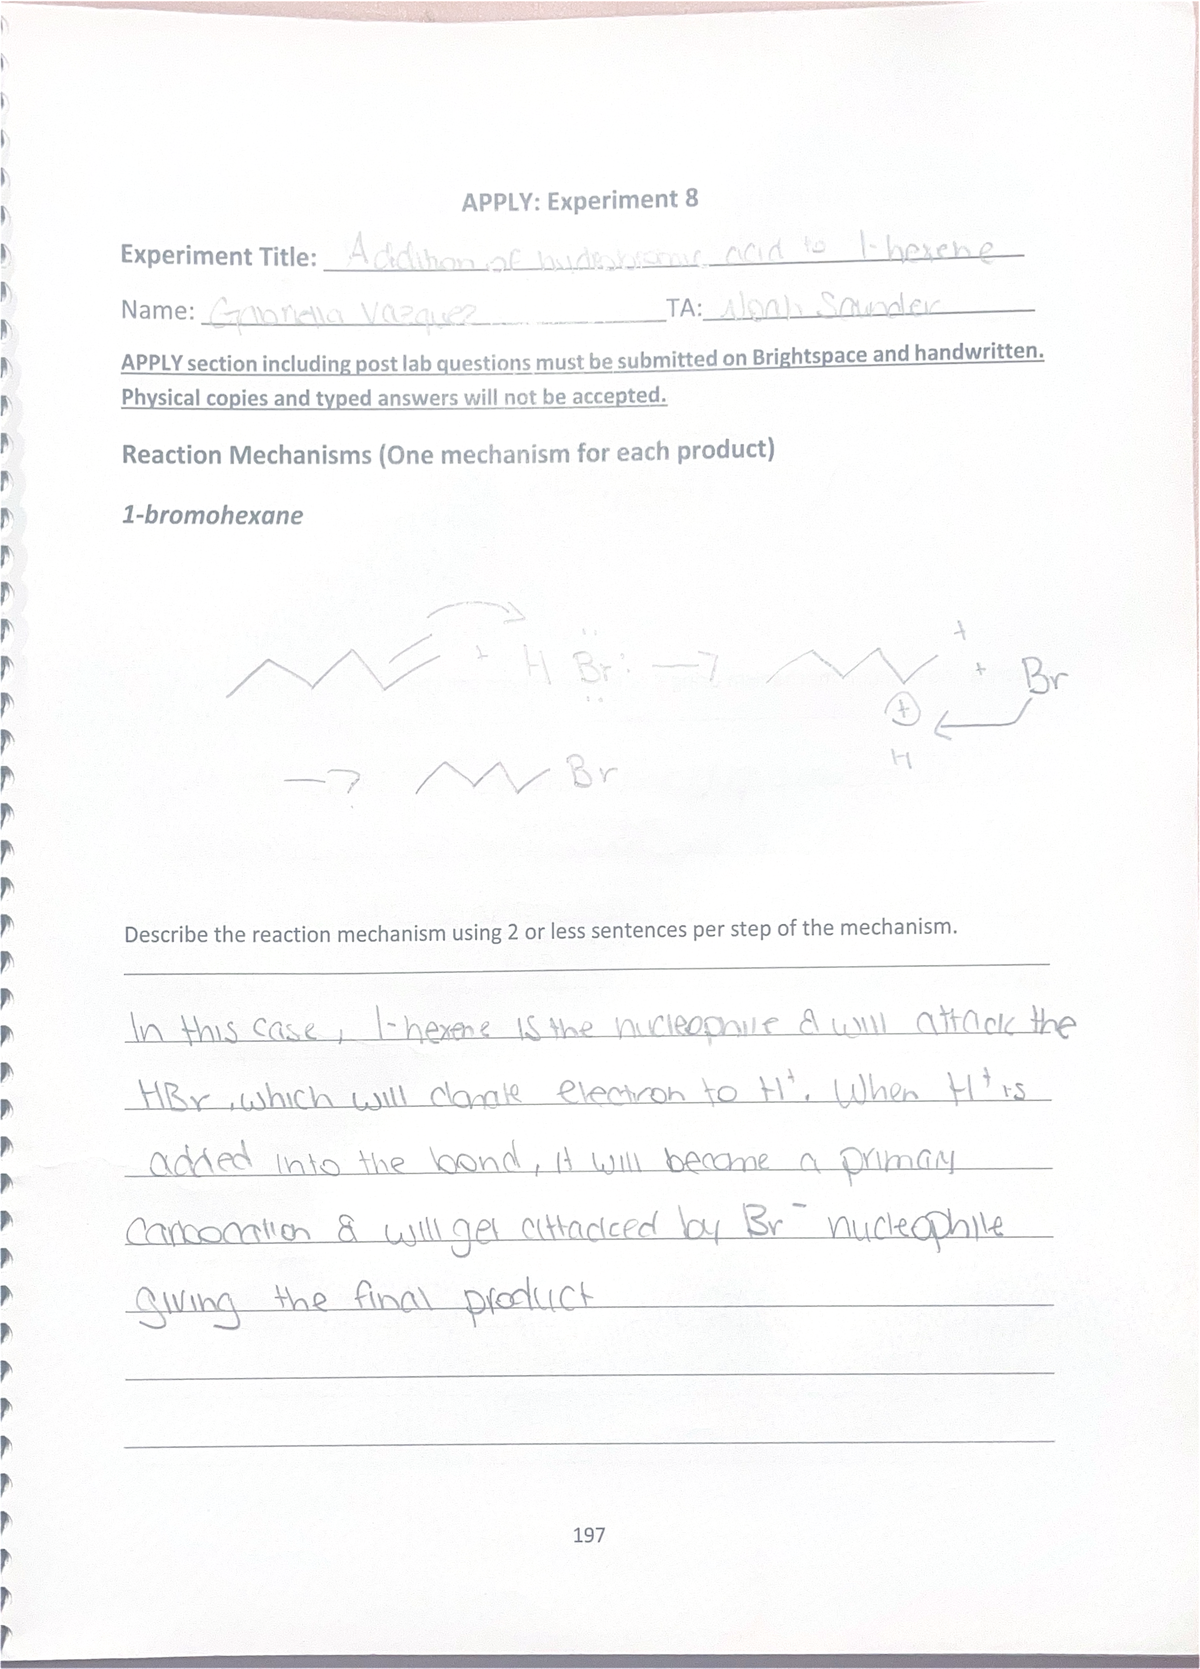 APPLY: Experiment 8
Experiment Title: Addition of hydrobromic acid to 1-hexene
Name: Gabriella Vazquez TA: Noah Saunder
APPLY section including post lab questions must be submitted on Brightspace and handwritten.
Physical copies and typed answers will not be accepted.
Reaction Mechanisms (One mechanism for each product)
1-bromohexane
+ H Br: → + + Br
+
H
→ Br
Describe the reaction mechanism using 2 or less sentences per step of the mechanism.
In this case, 1-hexene is the nucleophile & will attack the
HBr, which will donate electron to H⁺. When H⁺ is
added into the bond, it will become a primary
carbocation & will get attacked by Br⁻ nucleophile
giving the final product
197